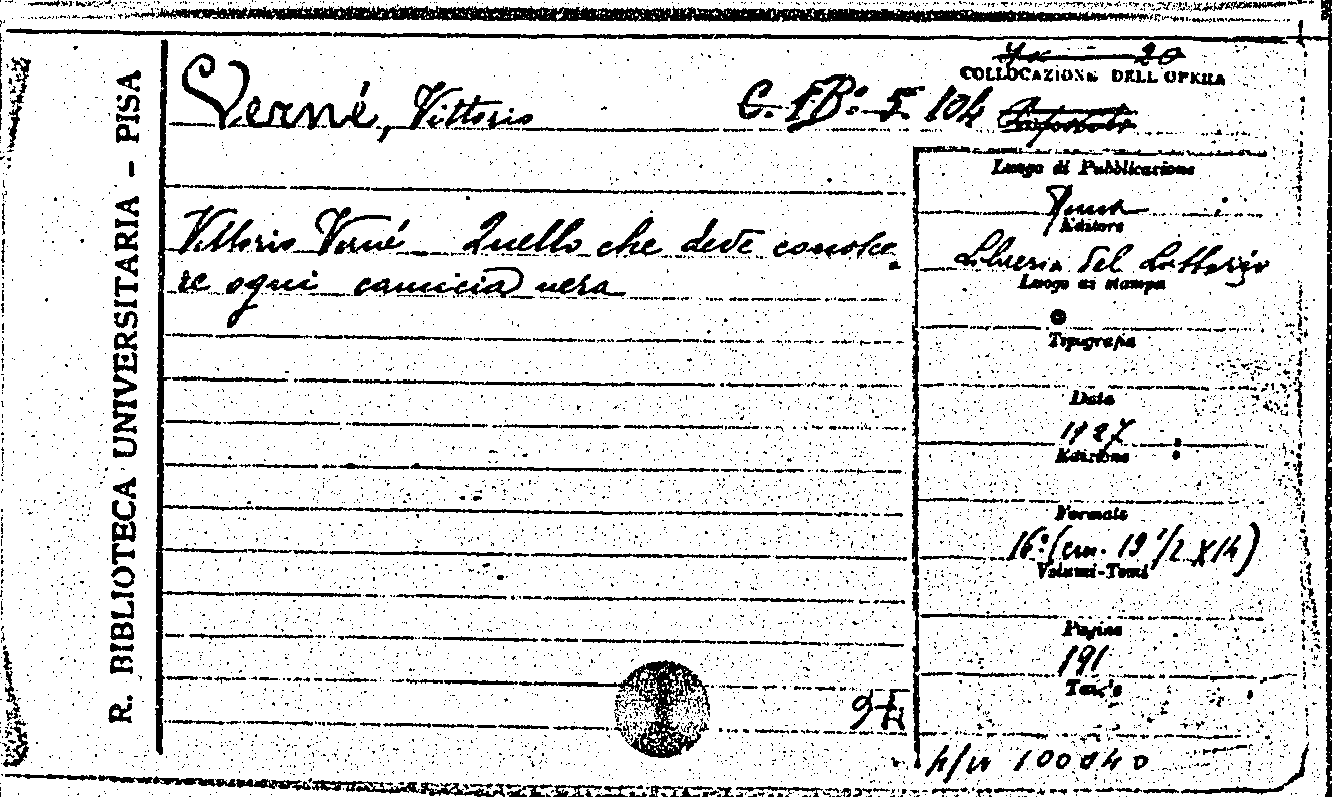 R. BIBLIOTECA UNIVERSITARIA - PISA
COLLOCAZIONE DELL'OPERA
Verné, Vittorio
C. FB. 5. 104
Vittorio Verné Quello che deve conosce-
re ogni camicia nera
Luogo di Pubblicazione
Roma
Editore
Libreria del Littorio
Luogo di stampa
Tipografia
Data
1927
Edizione
Formato
16° (cm. 19 1/2 X 14)
Volumi-Tomi
Pagine
191
Tavole
100040